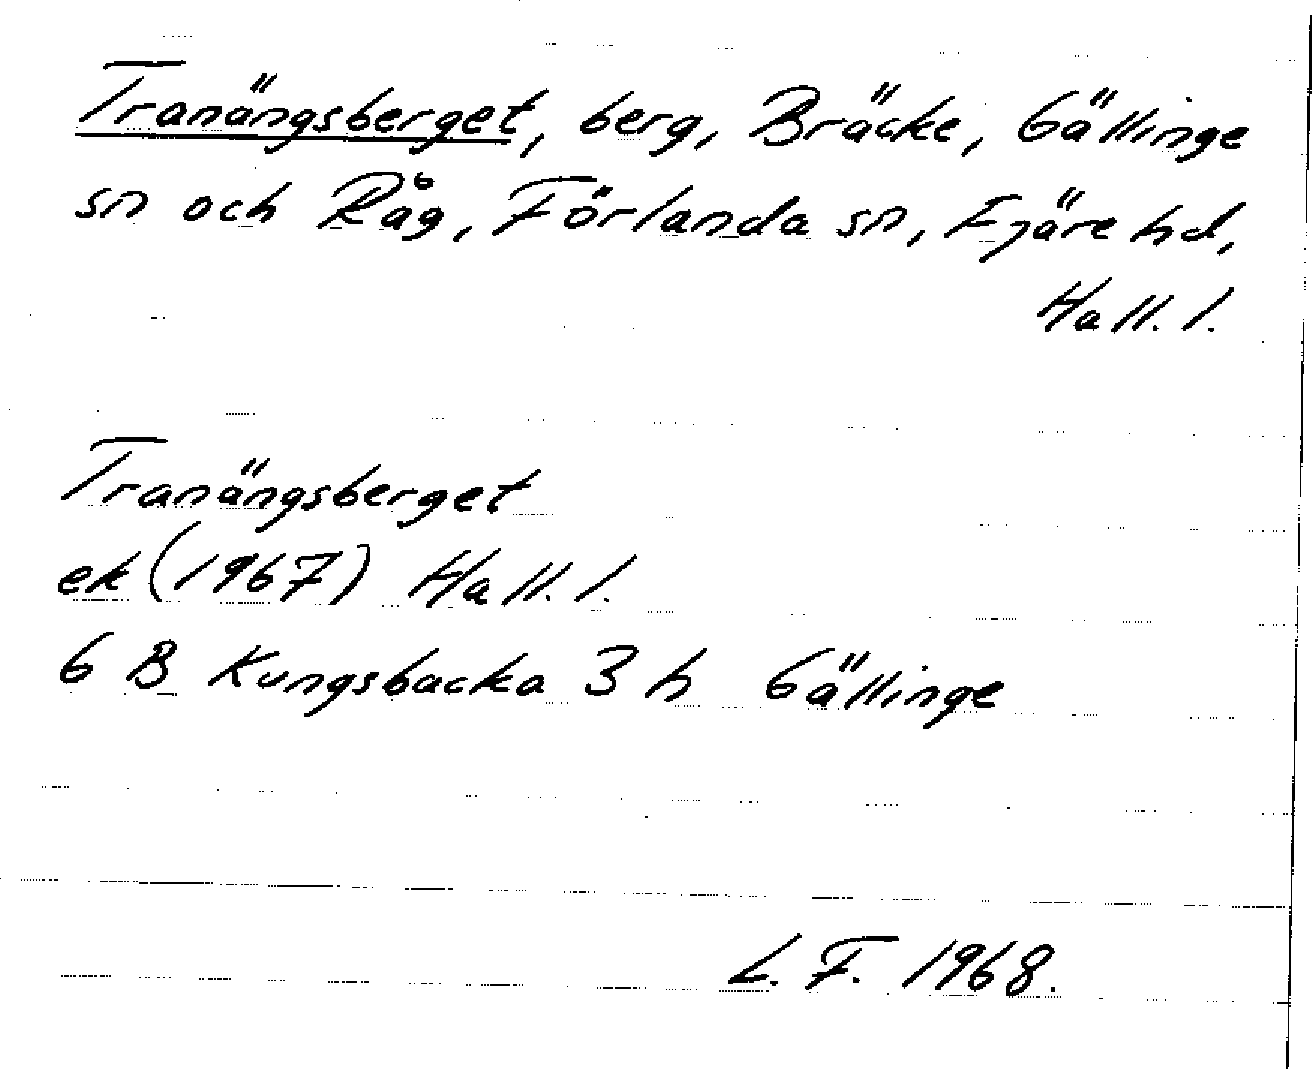 Tranängsberget, berg, Bräcke, Gällinge
sn och Råg, Förlanda sn, Fjäre hd,
Hall. l.
Tranängsberget
ek (1967) Hall. l.
6 B Kungsbacka 3 h Gällinge
L. F. 1968.